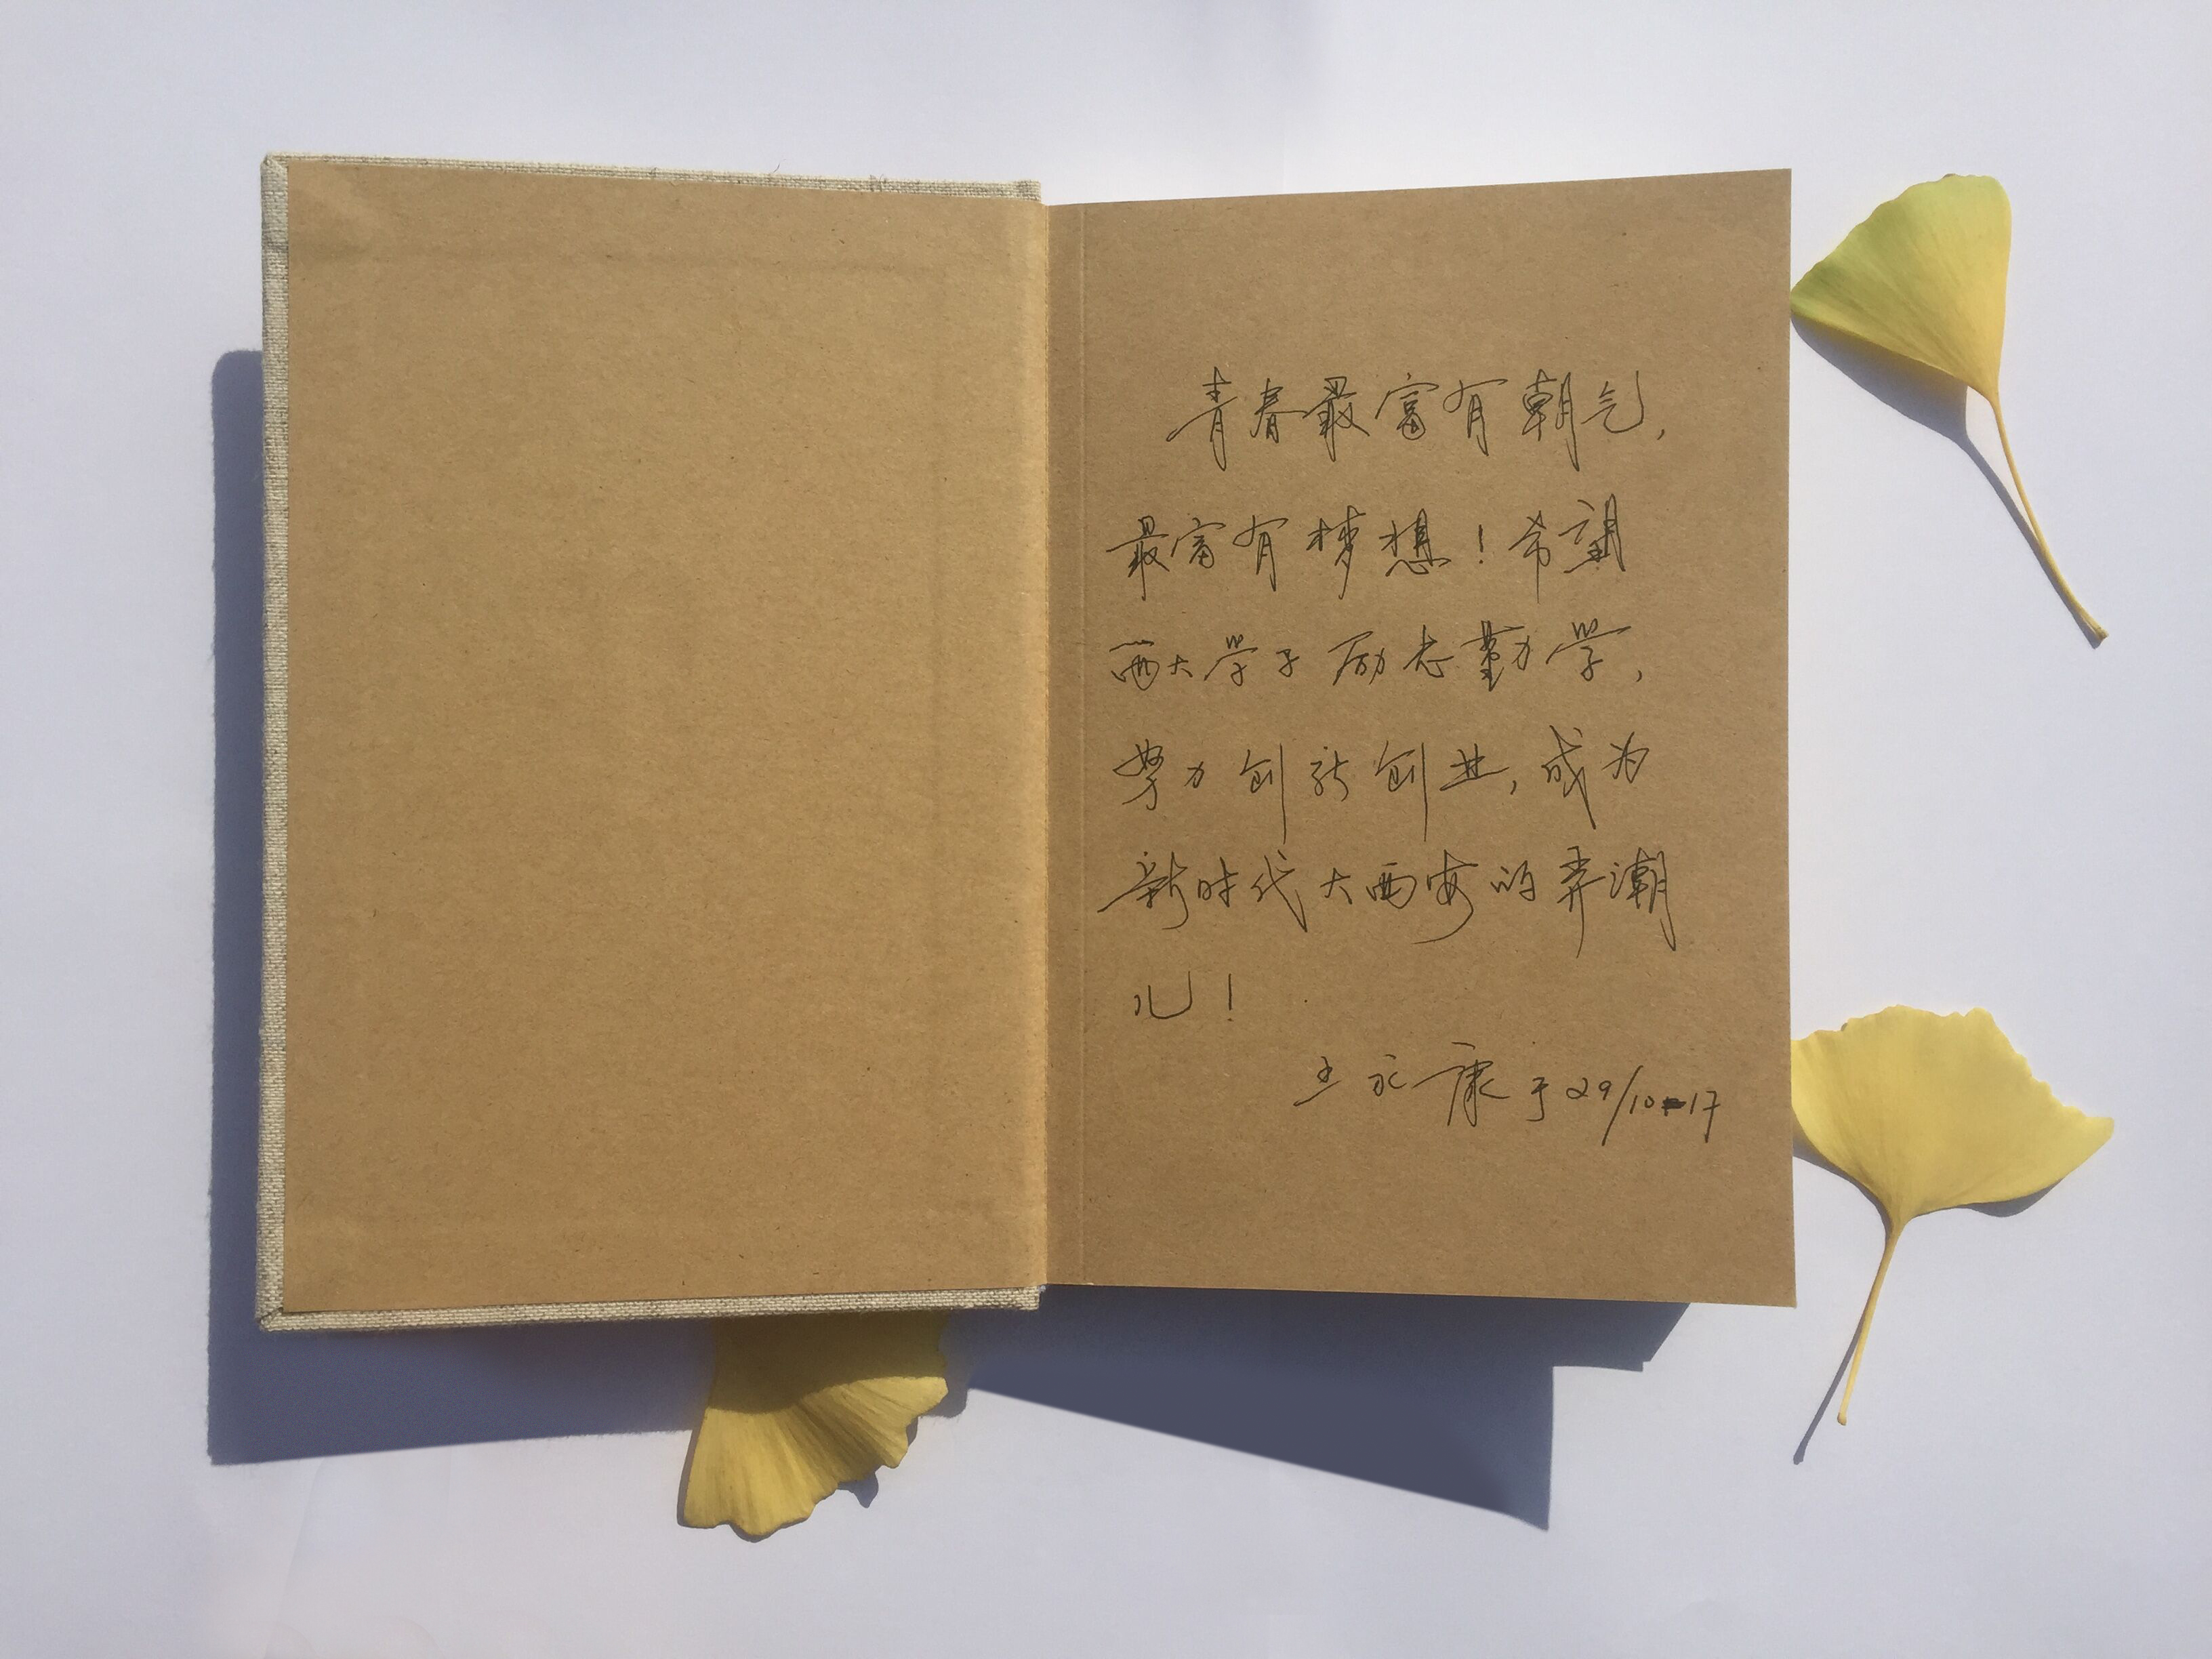 青春最富有朝气,
最富有梦想!希望
西大学子励志勤学,
努力创新创业,成为
新时代大西安的弄潮
儿!
王永康于29/10-17